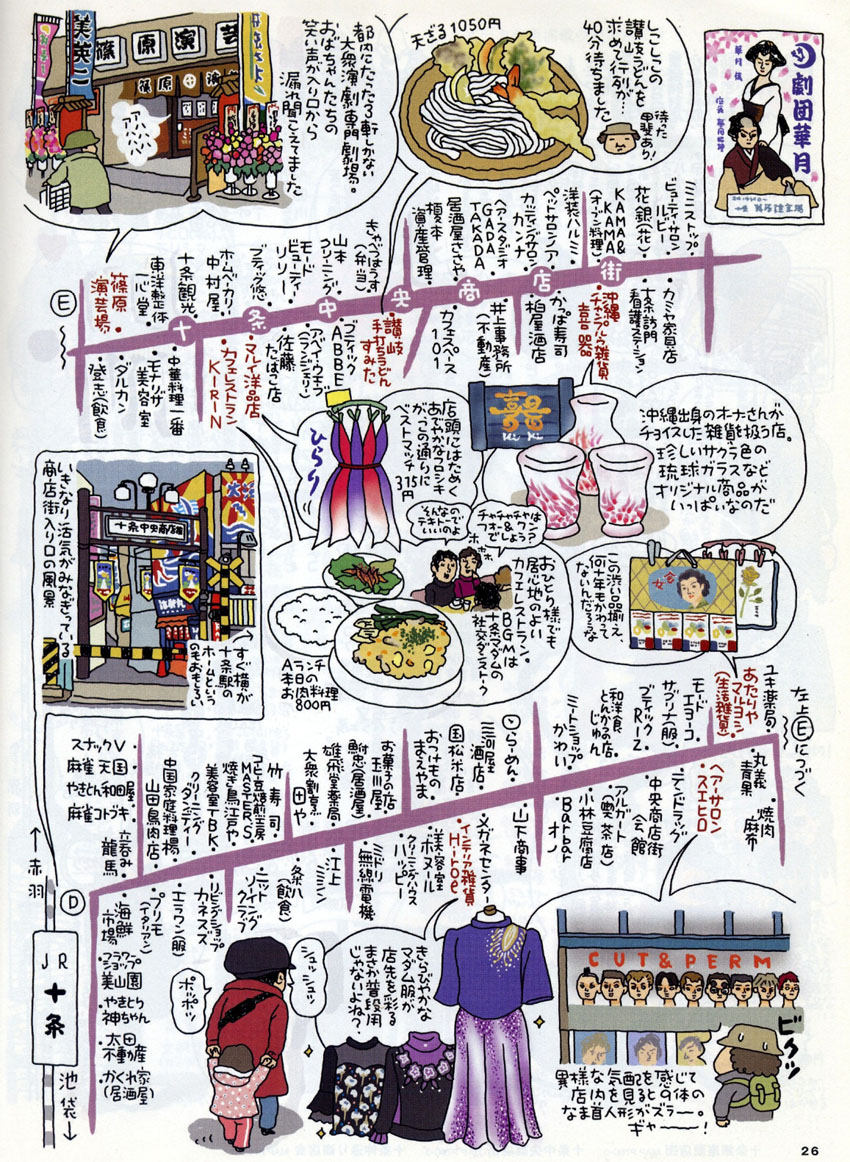 都内にたった二軒しかない
大衆演劇専門劇場。
おばちゃんたちの
笑い声が入り口から
漏れ聞こえてきました
美英二
篠原演芸
篠原演
アハハハハ
天ざる1050円
しこしこの
讃岐うどんを
求めて行列が…
40分待ちました
待った
甲斐あり!
劇団華月
E
十条中央商店街
篠原
演芸場
東洋整体
一心堂
十条観光
中村屋
ホームベーカリー
ブティック悠
ビューティー
リリー
モード
山本
クリーニング
きゃべつはうす
(弁当)
榎本
海産管理
居酒屋ささや
GADA
TAKADA
ヘア・スタジオ
カッティングサロン
カンナ
ペットサロン ノア
洋装ハルミ
KAMA&
KAMA
(オーブン料理)
花銀(花)
ビューティサロン
ルビー
ミニストップ
登志(飲食)
ダルカン
モナリザ
美容室
中華料理一番
カフェレストラン
KIRIN
マルイ洋品店
佐藤
たばこ店
アバイ・ウエブ
(ランジェリー)
ブティック
ABBE
讃岐
手打ちうどん
すみた
カフェスペース
101
井上事務所
(不動産)
柏屋酒店
かっぱ寿司
沖縄
チャンプルゥ雑貨
喜器
十条訪問
看護ステーション
カミヤ家具店
店頭にはためく
あでやかなフロシキ
がこの通りに
ベストマッチ
315円
ひらり
囍
Ki Ki
沖縄出身のオーナーさんが
チョイスした雑貨を扱う店。
珍しいサクラ色の
琉球ガラスなど
オリジナル商品が
いっぱいなのだ
いきなり活気がみなぎっている
商店街入り口の風景
十条中央商店街
すぐ横が
十条駅の
ホームという
のもおもしろい
そんなの
テキトーで
いいのよ
チャチャチャは
&ワン?
フォーでしょう?
ホホホ
おひとり様でも
居心地のよい
カフェレストラン。
BGMは
十条マダムの
社交ダンストーク
Aランチ
本日の
お肉料理
800円
この渋い品揃え、
何十年もかわって
ないんだろうな
左上Eにつづく
ユキ薬局
あたりや
マルヨシ
(生活雑貨)
モード
エイコー
サブリナ(服)
ブティック
RIZ
和洋食
とんかつの店
じゅん
ミートショップ
かわい
らーめん
三河屋
酒店
国松米店
おつけもの
まえやま
お菓子の店
玉川屋
鮒忠(居酒屋)
雄飛堂薬局
大衆割烹
田や
竹寿司
コーヒー豆焙煎工房
MASTER'S
焼き鳥江戸や
美容室TBK
クリーニング
ダンディー
中国家庭料理楊
山田鳥肉店
立呑み
龍馬
スナックV
麻雀天国
やきとん和田屋
麻雀コトブキ
丸義
青果
焼肉
麻布
ヘアーサロン
スエヒロ
テンドラッグ
中央商店街
会館
アルガード
(喫茶店)
小林豆腐店
Barbar
オノ
山下商事
メガネセンター
インテリア雑貨
Hiroe
美容室
ボヌール
クリーニングハウス
ハッピー
ミドリ
無線電機
江上
ミシン
条八
(飲食)
ニット
ソーイング
クラフ
リビングショップ
カネスズ
エラワン(服)
プリモ
(イタリアン)
海鮮
市場
フラワー
ショップ
美山園
やきとり
神ちゃん
太田
不動産
かくれ家
(居酒屋)
D
↑赤羽
JR
十条
池袋↓
シュッシュッ
ポッポッ
きらびやかな
マダム服が
店先を彩る
まさか普段用
じゃないよね?
CUT&PERM
ビクッ
異様な人気配を感じて
店内を見るとその体の
なま首人形がズラーー。
ギャーー!
26